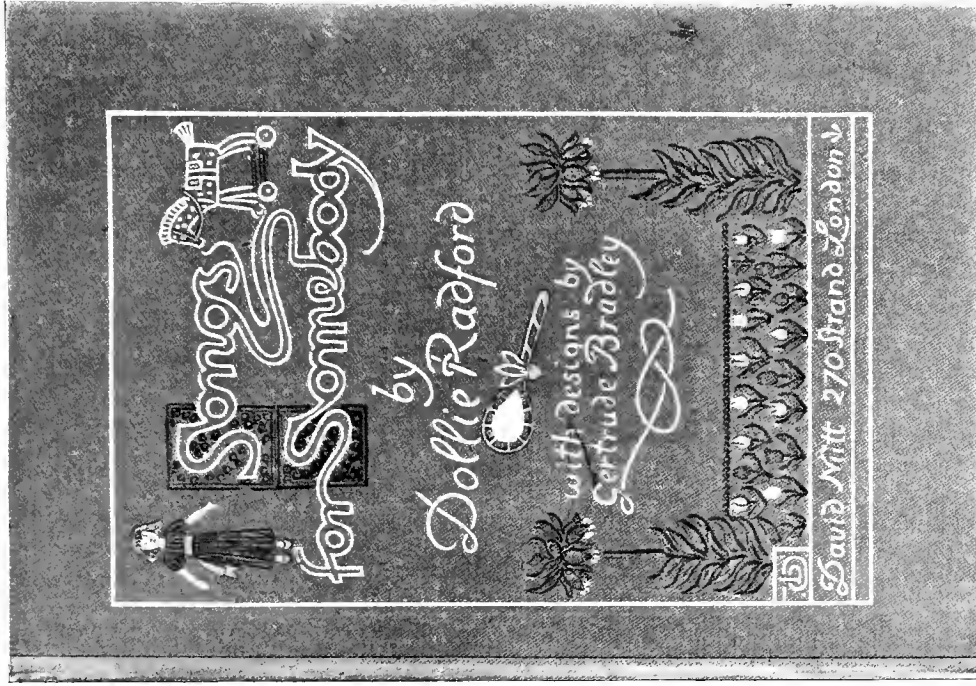 Songs
for Somebody
by
Dollie Radford
with designs by
Gertrude Bradley
David Nutt 270 Strand London